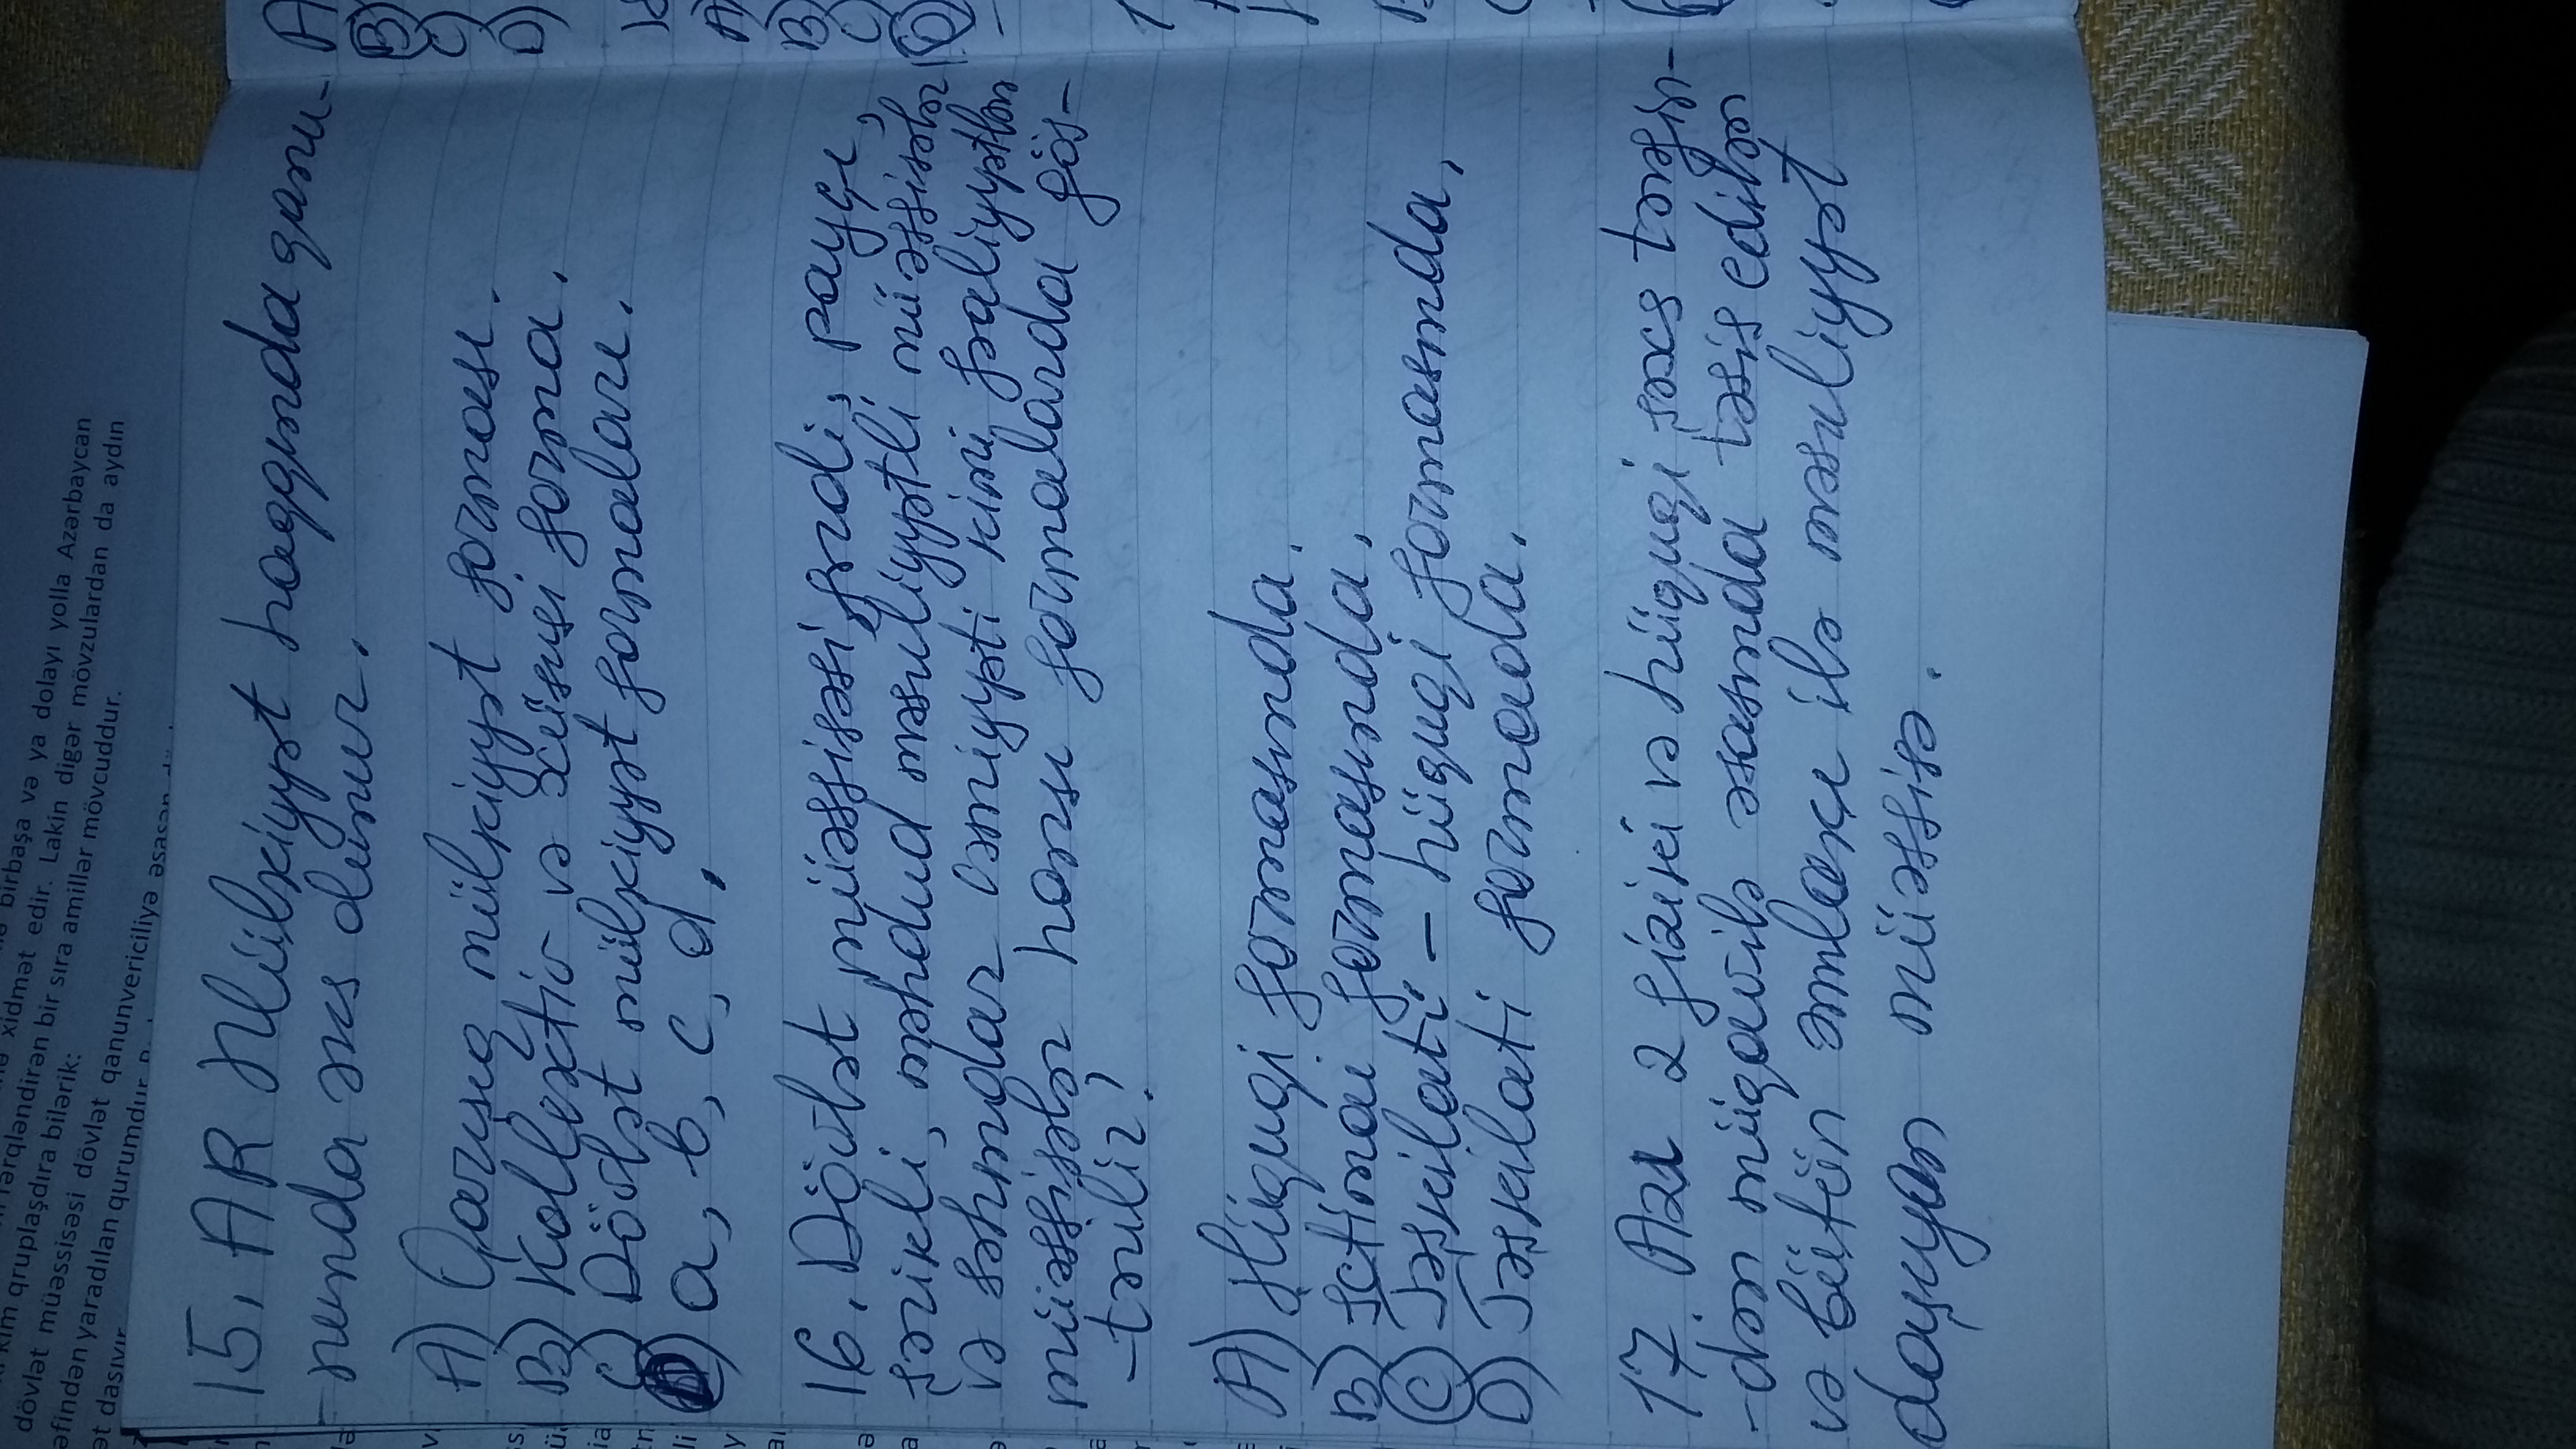 birbaşa və ya dolayı yolla Azərbaycan
xidmət edir. Lakin digər mövzulardan da aydın
fərqləndirən bir sıra amillər mövcuddur.
kim qruplaşdıra bilərik:
dövlət müəssisəsi dövlət qanunvericiliyə əsasən
əfindən yaradılan qurumdur.
ət daşıyır
15. AR Mülkiyyət haqqında qanu-
-nunda əks olunur.
A) Qarışıq mülkiyyət forması.
B) Kollektiv və xüsusi forma.
C) Dövlət mülkiyyət formaları.
D) a, b, c, d.
16. Dövlət müəssisəsi, fərdi, payçı,
şərikli, məhdud məsuliyyətli müəssisələr
və səhmdar cəmiyyəti kimi fəaliyyətlən
müəssisələr hansı formalarda gös-
-tərilir?
A) Hüquqi formasında.
B) İctimai formasında.
C) Təşkilati - hüquqi formasında,
D) Təşkilati formada.
17. Azı 2 fiziki və hüquqi şəxs tərəfin-
-dən müqavilə əsasında təsis edilən
və bütün əmlakı ilə məsuliyyət
daşıyan müəssisə.
A
B)
C)
D)
A)
B)
C)
D